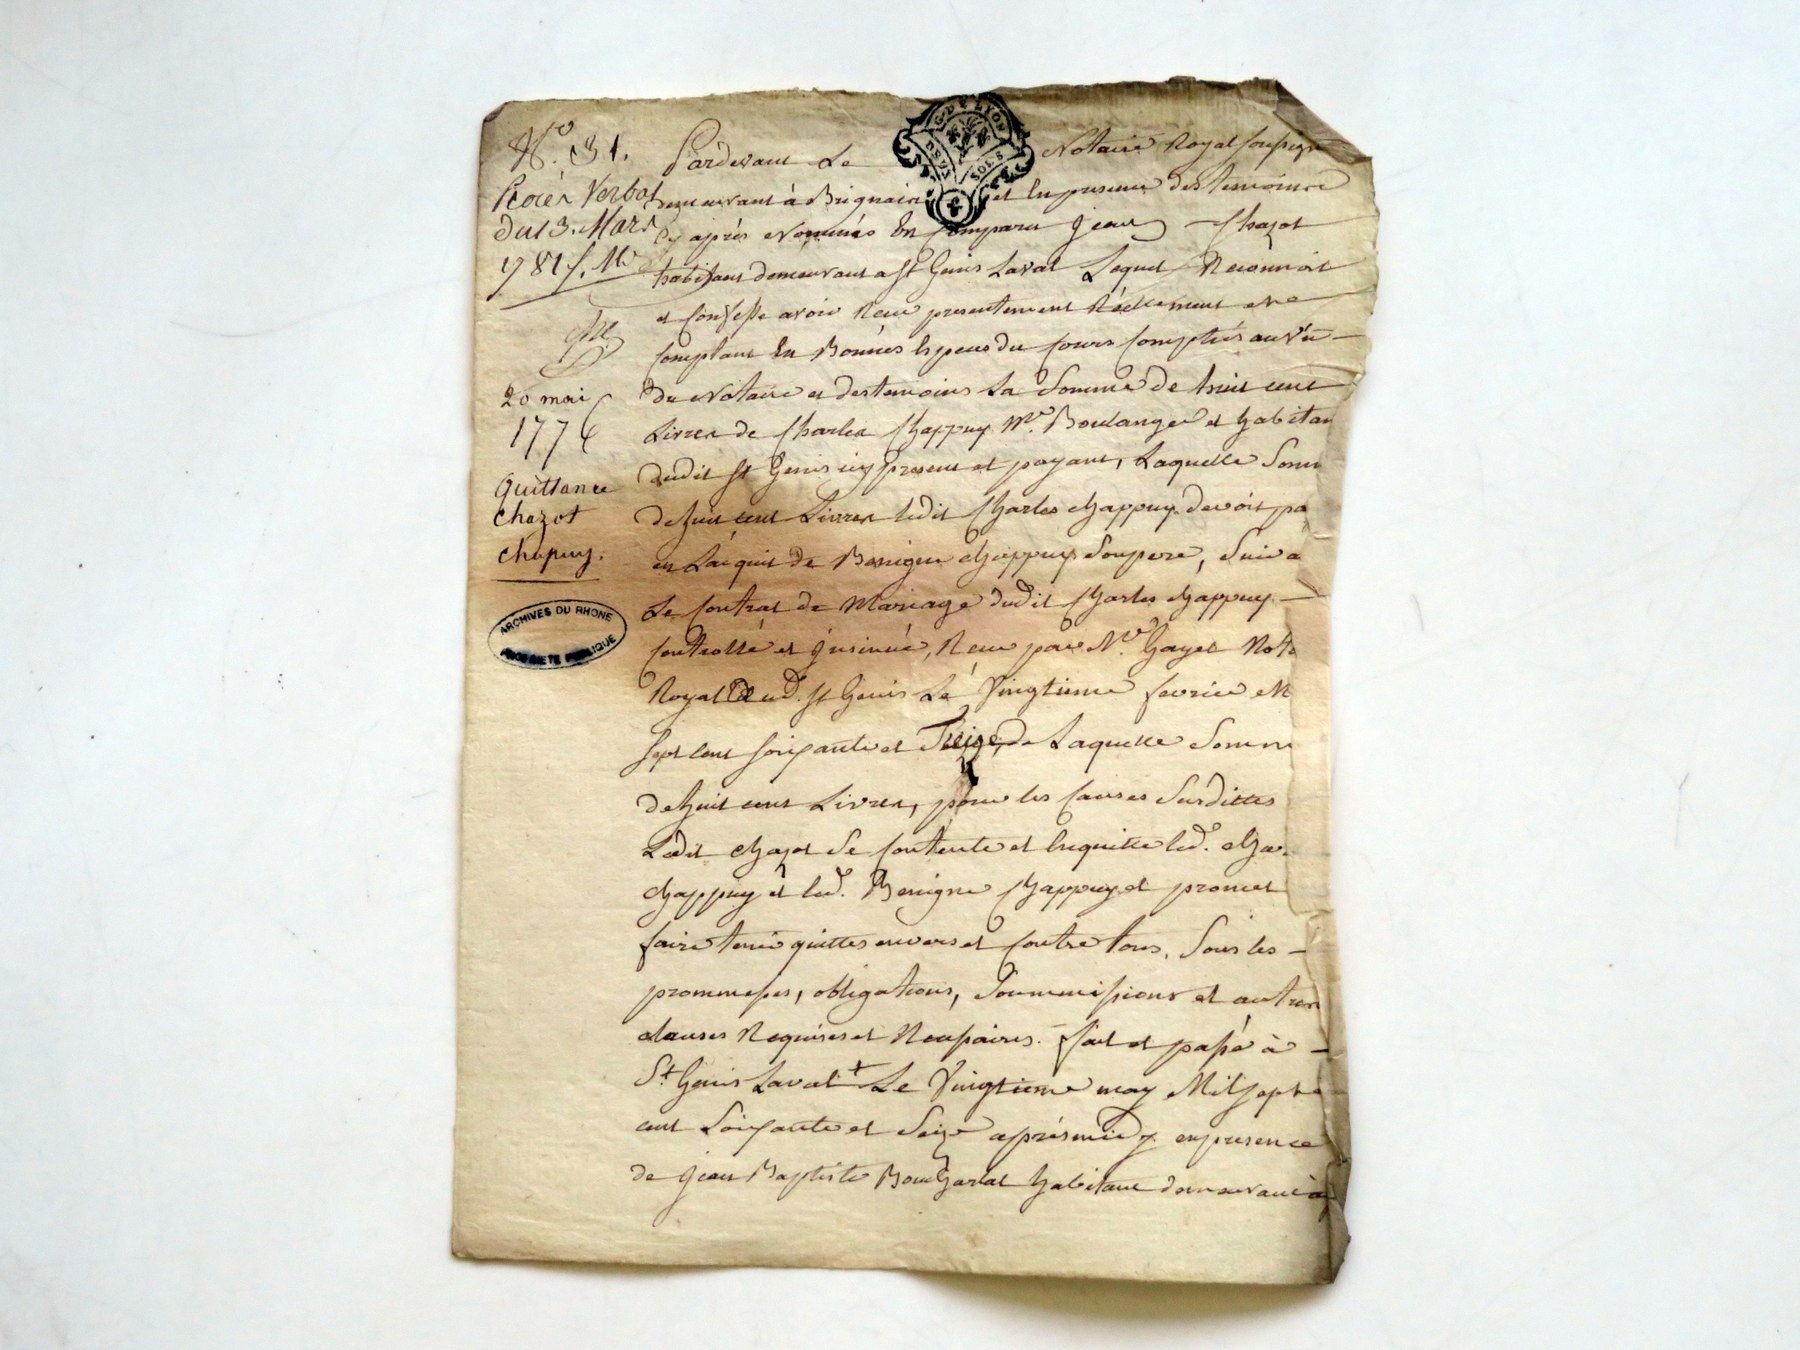 N.º 31.
Procès Verbal
du 13. Mars
1781 /. Mr
20 mai
1776
Quittance
Chazot
Chapuy.
ARCHIVES DU RHONE
PROPRIETE PUBLIQUE
G. DE LYON
DEUX SOLS
Pardevant Le Notaire Royal soussigné
demeurant à Brignais et En presence des temoins
Cy après Nommés En Comparu Jean Chazot
habitant demeurant a St Genis Laval Lequel Reconnoit
et Confesse avoir Reçu presentement Réellement et
Comptant En Bonnes Especes du Cours Comptés au Vû
du Notaire et des temoins La Somme de huit cent
Livres de Charles Chappuy Mre. Boulanger et habitan
dudit St Genis icy present et payant, Laquelle Som
de huit cent Livres ledit Charles Chappuy devoit pa
en L'acquit de Benigne Chappuy Son pere, Suiva
Le Contrat de Mariage dudit Charles Chappuy
Controllé et jnsinué, Reçu par Mre. Gayet Nota
Royal dud. St Genis Le Vingtieme fevrier M
Sept cent soixante et Treize, de Laquelle Somm
de huit cent Livres, pour les Causes Susdittes
Ledit Chazot Se Contente et Enquitte led. Cha
Chappuy et led. Benigne Chappuy et promet
faire tenir quittes envers et Contre tous, Sous les
prommesses, obligations, Soummissions et autres
clauses Requises et Necessaires. fait et passé à
St. Genis Laval Le Vingtieme may Mil Sept
cent Soixante et Seize après midy en presence
de Jean Baptiste habitant demeurant à